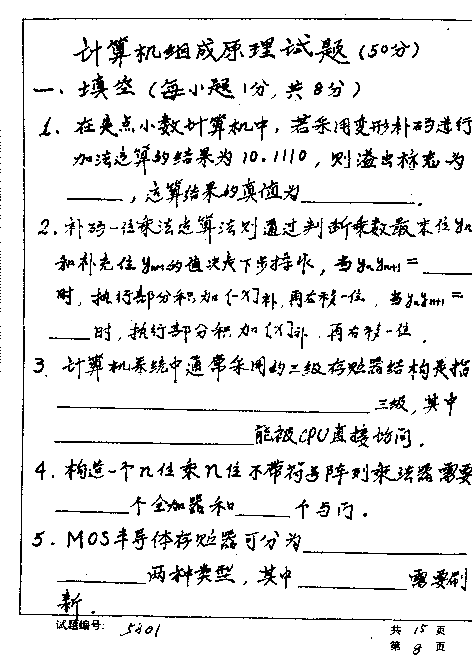 计算机组成原理试题(50分)
一、填空(每小题1分,共8分)
1. 在定点小数计算机中,若采用变形补码进行
加法运算的结果为10.1110,则溢出标志为
______,运算结果的真值为____________。
2. 补码一位乘法运算法则通过判断乘数最末位yn
和补充位yn+1的值决定下步操作,当ynyn+1=____
时,执行部分积加[-X]补,再右移一位,当ynyn+1=
____时,执行部分积加[X]补,再右移一位。
3. 计算机系统中通常采用的三级存贮器结构是指
______________________________三级,其中
____________________能被CPU直接访问。
4. 构造一个n位乘n位不带符号阵列乘法器需要
______个全加器和_____个与门。
5. MOS半导体存贮器可分为______________
________两种类型,其中__________需要刷
新。
试题编号: 5201
共 15 页
第 8 页